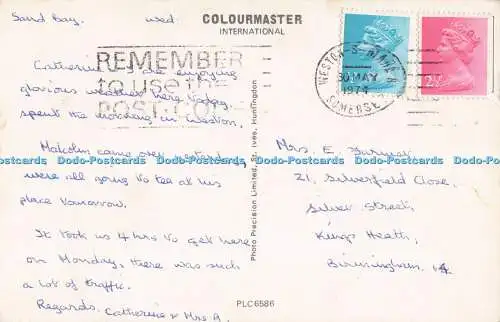 Sand Bay.
used
COLOURMASTER
INTERNATIONAL
REMEMBER
to use the
POSTCODE
WESTON-S-MARE
30 MAY
1974
SOMERSET
Catherine & I are enjoying
glorious weather here today,
spent the morning in Weston.
Malcolm came over yesterday
were all going to tea at his
place tomorrow.
It took us 4 hrs to get here
on Monday, there was such
a lot of traffic.
Regards, Catherine & Mrs A.
Photo Precision Limited, St. Ives, Huntingdon
PLC6586
Mrs. E.
21, Silverfield Close,
Silver Street,
Kings Heath,
Birmingham. 14
Dodo-Postcards Dodo-Postcards Dodo-Postcards Dodo-Postcards Dodo-Postcards